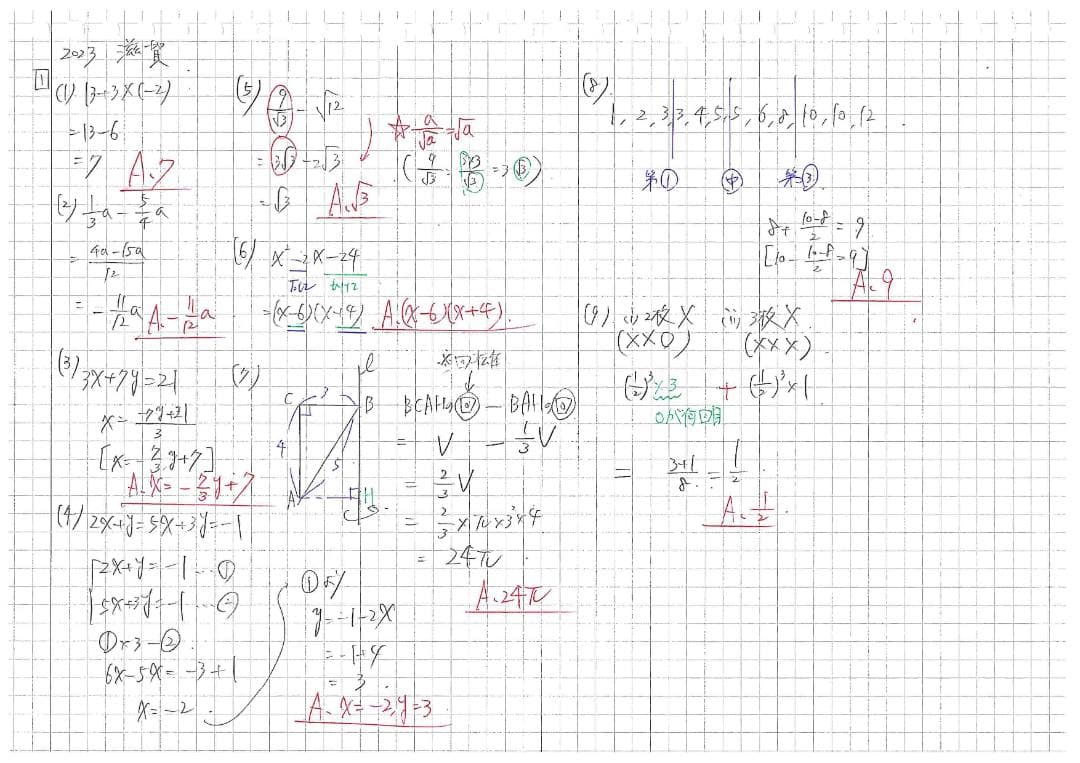 2023 滋賀
1
(1) 13+3×(-2)
=13-6
=7
A. 7
(2) 1/3 a - 5/4 a
= (4a-15a)/12
= -11/12 a
A. -11/12 a
(3) 3x+7y=21
x= (-7y+21)/3
[x=-7/3 y+7]
A. x=-7/3 y+7
(4) 2x+y=5x+3y=-1
2x+y=-1…①
5x+3y=-1…②
①×3-②
6x-5x=-3+1
x=-2
①より
y=-1-2x
=-1+4
=3
A. x=-2, y=3
(5) 9/√3 - √12
=3√3-2√3
=√3
A. √3
☆ a/√a = √a
(9/√3 = 3×3/√3 = 3√3)
(6) x²-2x-24
たして かけて
=(x-6)(x+4)
A. (x-6)(x+4)
(7)
C 3 B
ℓ
4
5
A
H
※回転体
BCAHの回 - BAHの回
= V - 1/3 V
= 2/3 V
= 2/3 ×π×3²×4
= 24π
A. 24π
(8)
1, 2, 3, 3, 4, 5, 5, 6, 8, 10, 10, 12
第① 中 第③
8+ (10-8)/2 = 9
[10- (10-8)/2 = 9]
A. 9
(9) i) 2枚× ii) 3枚×
(××○) (×××)
(1/2)³×3 + (1/2)³×1
○が何回目
= (3+1)/8 = 1/2
A. 1/2